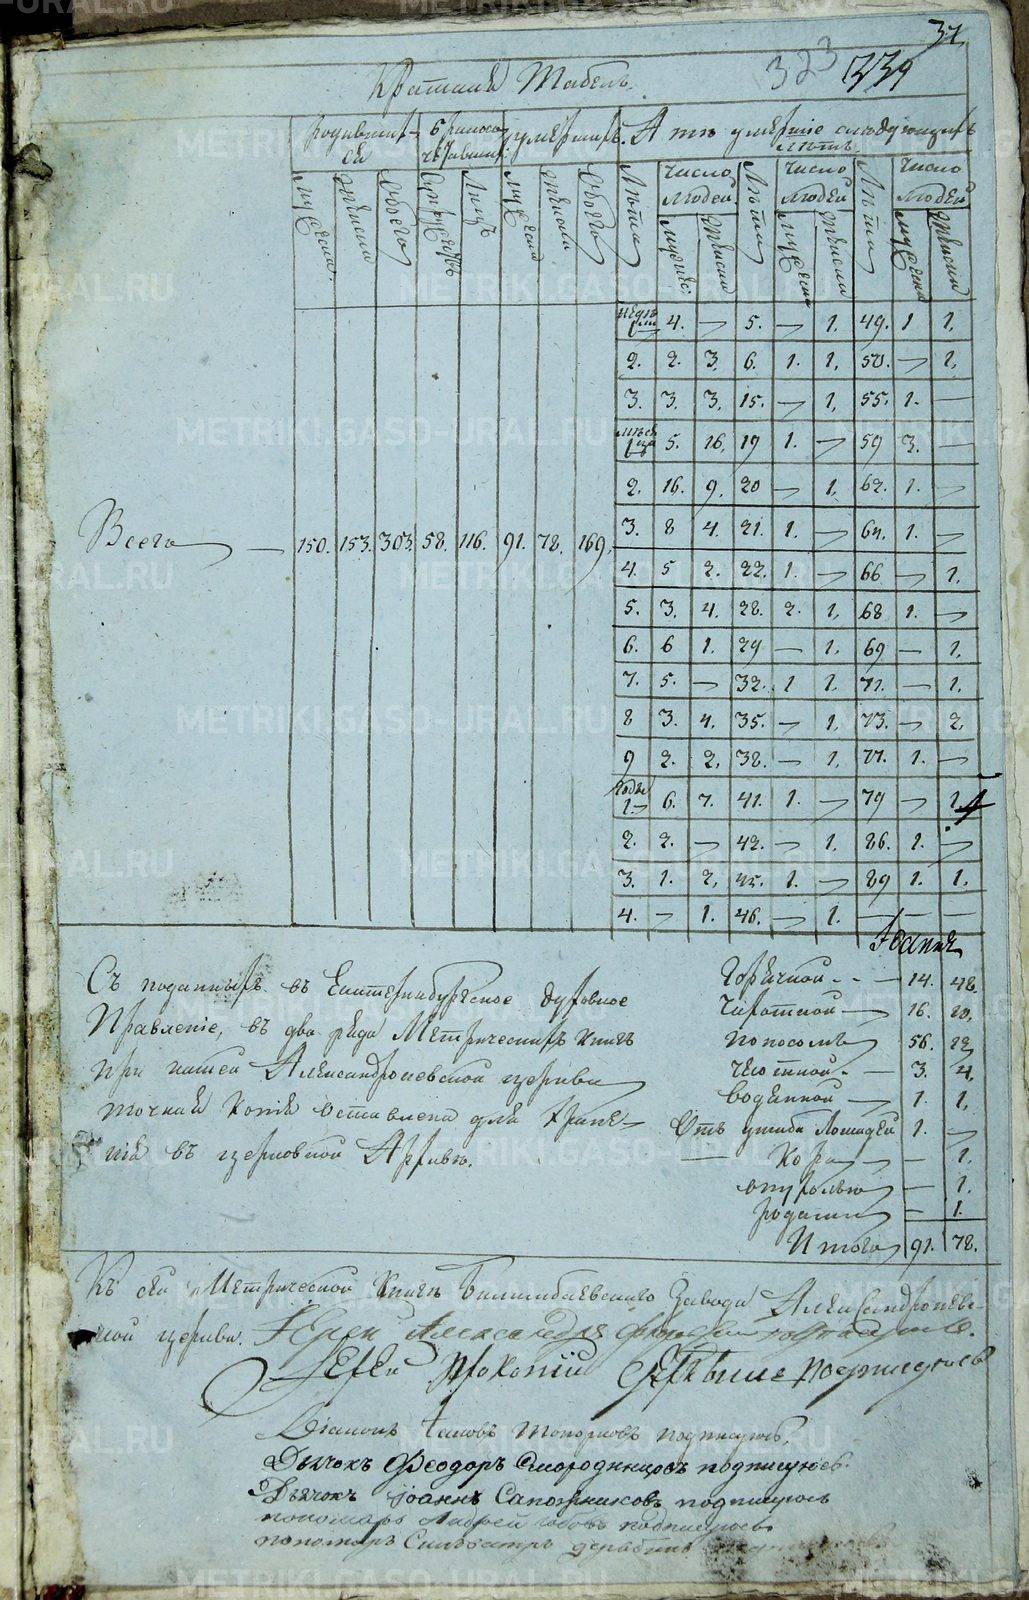 31
323 339
Краткая Табель.
родивших- бракосо- умерших. А тѣ умершіе слѣдующихъ
ся четавших: лѣтъ
число число число
людей людей людей
мужеска. женска обоего супружествъ Лицъ мужеска женска обоего Лѣта мужеск: женска Лѣта мужеска женска Лѣта мужеска женска
недѣли
1 4. — 5. — 1. 49. 1 1.
2. 2. 3. 6. 1. 1. 50. — 1.
3. 3. 3. 15. — 1. 55. 1. —
мѣсяца
1 5. 16. 19 1. — 59 3. —
2. 16. 9. 20 — 1. 62. 1. —
Всего — 150. 153. 303. 58. 116. 91. 78. 169. 3. 8 4. 21. 1. — 64. 1. —
4. 5 2. 22. 1. — 66 — 1.
5. 3. 4. 28. 2. 1. 68 1. —
6. 6 1. 29 — 1. 69 — 1.
7. 5. — 32. 1 1. 71. — 1.
8 3. 4. 35. — 1. 73. — 2.
9 2. 2. 38. — 1. 77. 1. —
Годы
1. 6. 7. 41. 1. — 79 — 1.
2. 2. — 42. — 1. 86. 1. —
3. 1. 2. 45. 1. — 89 1. 1.
4. — 1. 46. — 1. — — —
Съ поданныхъ въ Екатеринбургское духовное
Правленіе, въ два ряда Метрическихъ книгъ
при нашей Александроневской церкви
точная копія оставлена для хране-
нія въ церковной Архивѣ.
Горячкой — 14. 48.
Чихоткой — 16.
поносомъ 56.
чесоткой — 3. 4.
водянкой — 1. 1.
Отъ ушиба Лошадей 1. —
Кора — 1.
опухолью — 1.
родами — 1.
Итого 91. 78.
Къ сей Метрической книгѣ Билимбаевскаго Завода Александроневс-
кой церкви. Іерей Александръ
Іерей Прокопій подписуюсь
Діаконъ Іаковъ Топорковъ подписуюсь.
Дьячокъ Феодоръ Смородинцовъ подписуюсь.
Дьячокъ Іоаннъ Сапожниковъ подписуюсь
пономарь Андрей подписуюсь
пономарь Сильвестръ
METRIKI.GASO-URAL.RU